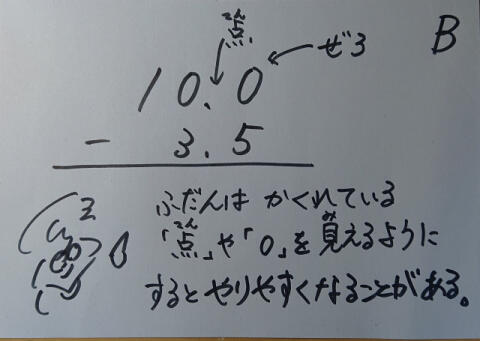 てん
点
ぜろ
B
10.0
- 3.5
ふだんは かくれている
「点」や「0」を見えるように
するとやりやすくなることがある。